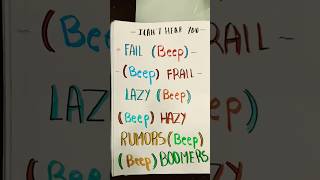 - I CAN'T HEAR YOU -
FAIL (Beep)
(Beep) FRAIL
LAZY (Beep)
(Beep) HAZY
RUMORS (Beep)
(Beep) BOOMERS